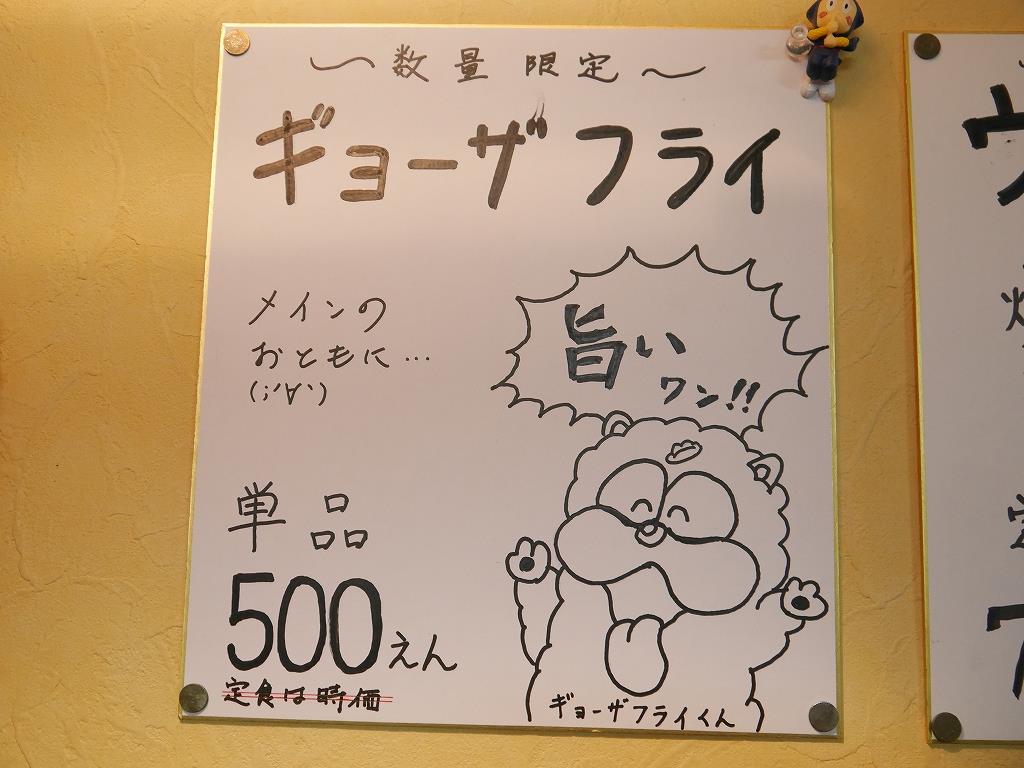 〜数量 限定〜
ギョーザフライ
メインの
おともに…
(;'∀')
旨い
ワン!!
単品
500えん
定食は時価
ギョーザフライくん